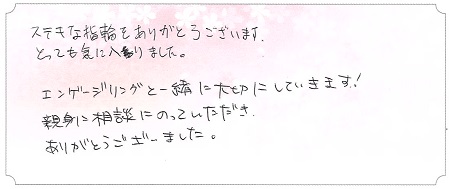 ステキな指輪をありがとうございます.
とっても気に入りました。
エンゲージリングと一緒に大切にしていきます!
親身に相談にのっていただき.
ありがとうございました。